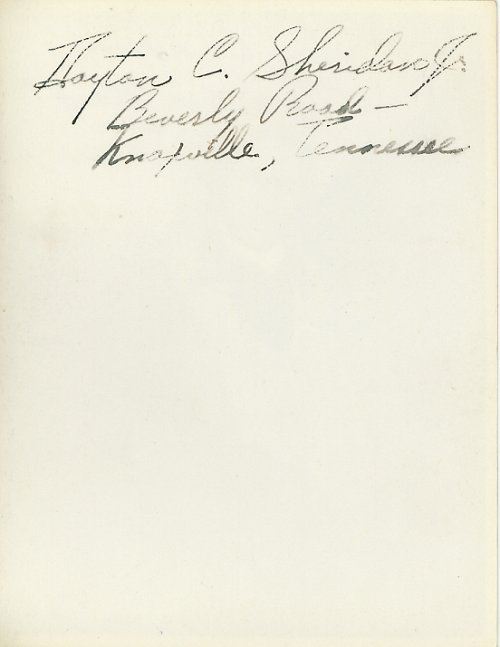 Hayton C. Sheridan Jr.
Beverly Road —
Knoxville, Tennessee